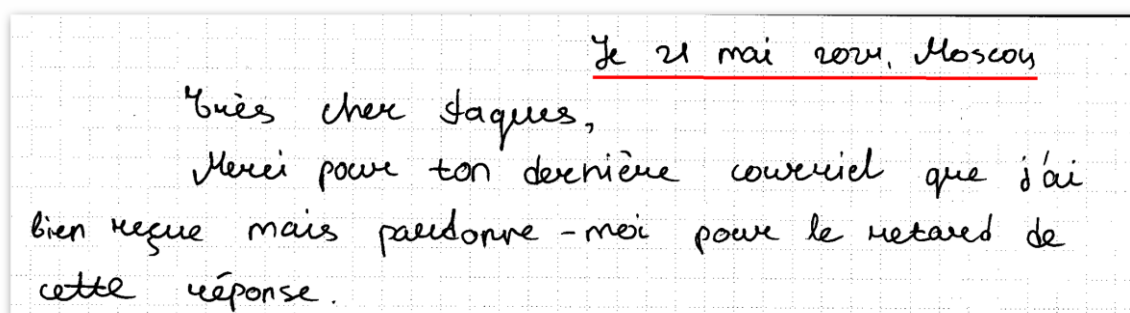 le 21 mai 2024, Moscou
Très cher Jaques,
Merci pour ton dernière courriel que j'ai
bien reçue mais pardonne-moi pour le retard de
cette réponse.